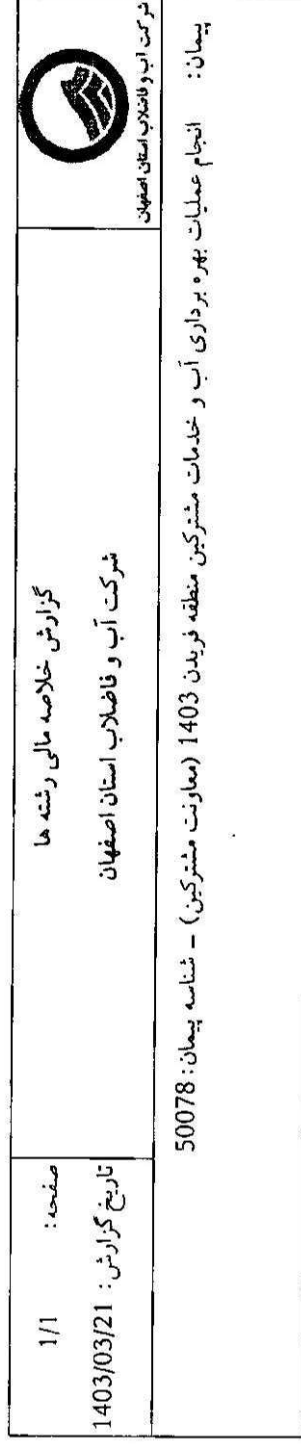 شرکت آب و فاضلاب استان اصفهان
گزارش خلاصه مالی رشته ها
شرکت آب و فاضلاب استان اصفهان
صفحه : 1/1
تاریخ گزارش : 1403/03/21
پیمان : انجام عملیات بهره برداری آب و خدمات مشترکین منطقه فریدن 1403 (معاونت مشترکین) - شناسه پیمان : 50078